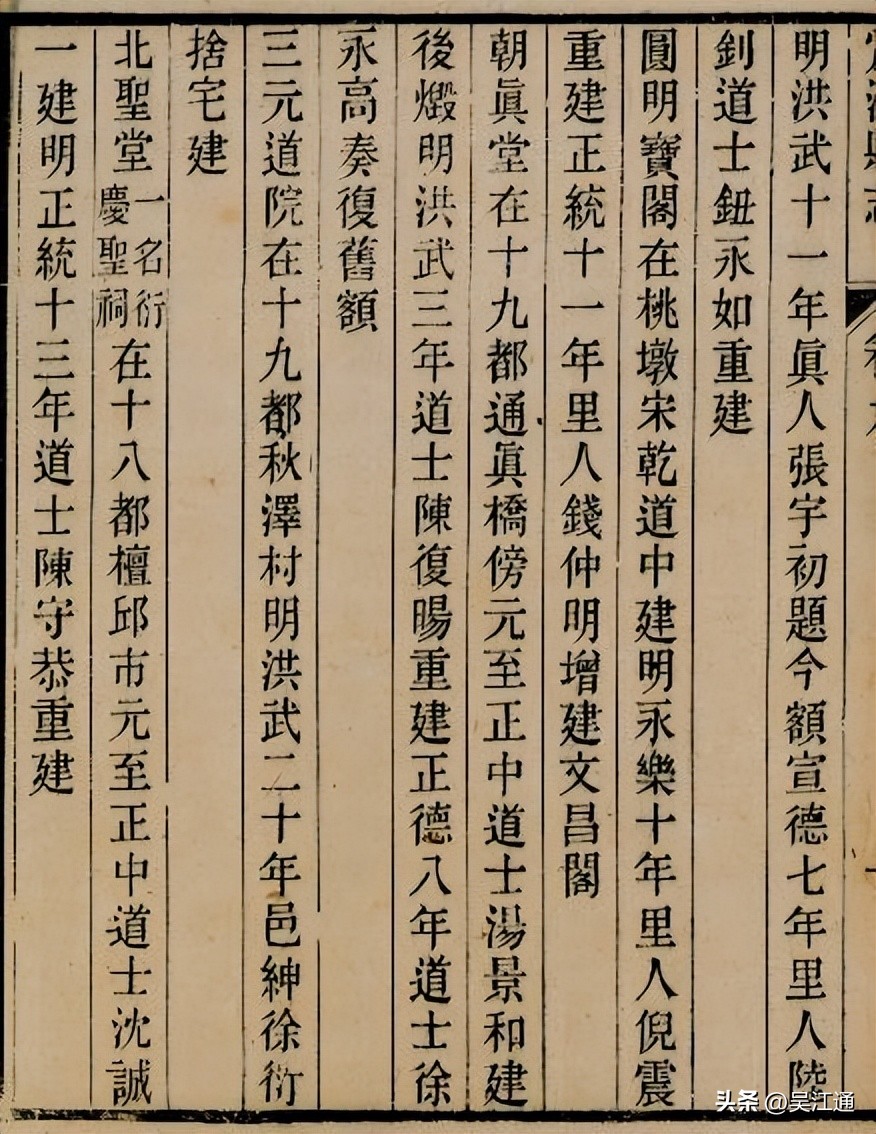 明洪武十一年眞人張宇初題今額宣德七年里人陸
釗道士鈕永如重建
圓明寶閣在桃墩宋乾道中建明永樂十年里人倪震
重建正統十一年里人錢仲明增建文昌閣
朝眞堂在十九都通眞橋傍元至正中道士湯景和建
後燬明洪武三年道士陳復暘重建正德八年道士徐
永高奏復舊額
三元道院在十九都秋澤村明洪武二十年邑紳徐衍
捨宅建
北聖堂一名衍慶聖祠在十八都檀邱市元至正中道士沈誠
一建明正統十三年道士陳守恭重建
头条@吴江通